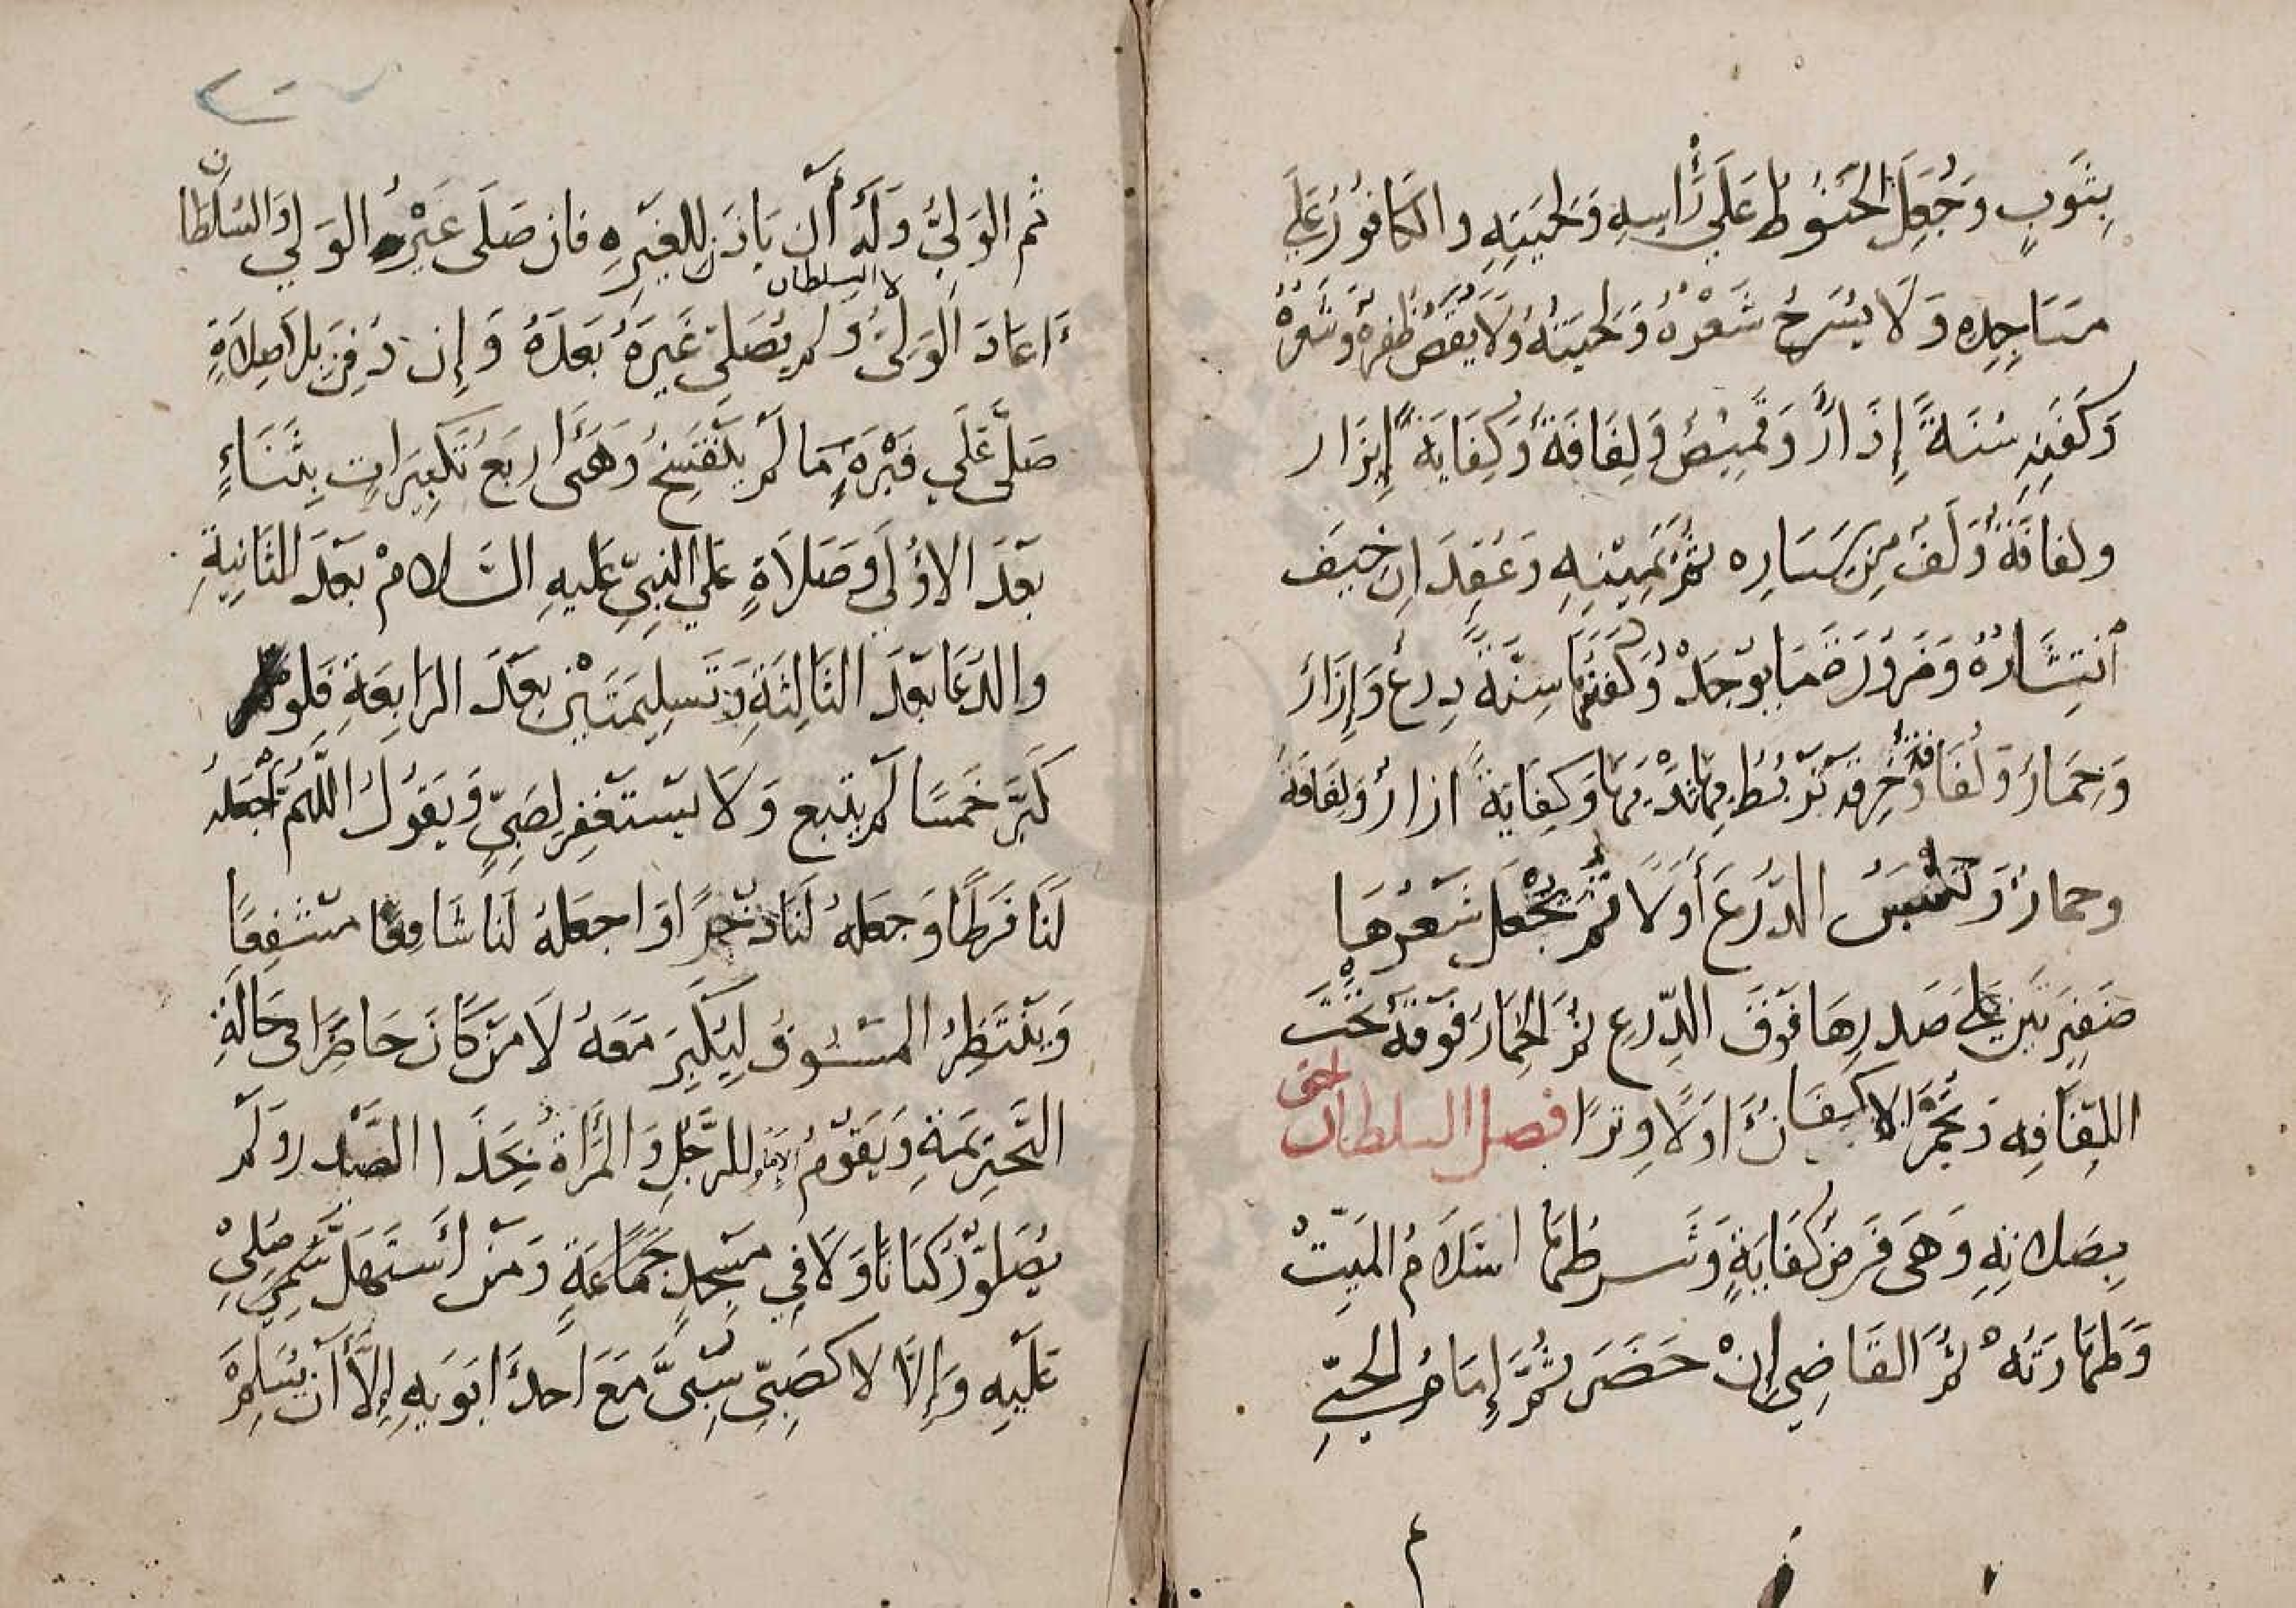 بِثَوبٍ وَجُعِلَ الحَنوُطُ عَلَي رَأسِهِ وَلِحْيَتِهِ والكَافُورُ عَلَي
مسَاجِدِه وَلَا يُسَرحُ شَعْرُهُ وَلِحيَتُهُ وَلَا يُقَصُ ظُفرهُ وَشَعْرُهُ
وَكَفَنِهِ سُنَةً إِذَارٌ وَقَمِيْصٌ وَلِفَافَةٌ وَكِفَايَةً إِزَار
ولفافَةٌ وَلُفَ مِن يَسَارِه ثُمَّ يَمِيْنِهِ وَعُقِدَ اِن خِيفَ
اُنتِشَارُهُ وَضَرُورَة مَا يوُجَدْ وَكَفَنُهَا سِنَّةً دِرعٌ وَإِزَارَ
وَخِمَارُ وَلُفَافةٌ وَخِرقه تَرْبُطُ بِهَا ثَدْيَهَا وَكِفَايَةً ازارُ وَلِفَافَةُ
وحمارُ وَتَلْبَسُ الدِّرعَ أَوَلًا ثُمَّ يُجْعَل شَعْرُهَا
ضَفِيْرَتَيَنِ عَلَي صَدرِهَا فَوقَ الدِّرعِ ثُمَّ الخِمَارُ فَوقَهُ تَحْتَ
اللِفَافِه وَتُجَمَّرُ الاكفَانُ اوَلًا وِترًا فصل السلطان احق
بِصَلاتِهِ وَهىَ فَرضُ كفَايَةٍ وَشَرطُهَا اسْلَامُ المَيِّتْ
وَطهَارَتُهُ ثُمَّ القَاضِي إِنْ حَضَرَ ثُمَّ إِمَامُ الحَيِّ
ثم الوَلِيُّ وَلَهُ أَن يَاذَن لِلغَيرِه فان صَلَى غَيْرُهُ الوَلِي وَالسُلطَان
أَعَادَ الوَلِىُّ وَلم يُصَلِي غَيرَهُ بَعدَهُ وَإِن دُفِنَ بِلَا صِلاَةٍ
لا السلطان
صَلَّى عَلَي قَبْرَهِ مَا لَم يَتَفَسَخُ وَهىَ اربَعُ تَكبِيَراتٍ بِثَنَاءٍ
بَعَدَ الاؤُلَى وَصَلَاةٍ عَلي النَبِيِّ عَليهِ السَّلامْ بَعدَ الثَانِيَةِ
والدُعَا بَعَدَ الثَالِثَةِ وَتَسلِيمَتَيْنِ بعَدَ الرَابِعَةِ فَلو
كَبَّرَ خَمسًا لَم يتبع وَلَا يَستَغفِر لِصَبِيٍّ وَيقَوُلُ اللَّهُمَّ اْجْعَلهُ
لَنَا فَرَطًا وَجعَلهُ لَنَا ذُخرًا وَاجعَلهُ لَنا شَافِعًا مشَفِعًا
وَيَنتَظِرُ المَسْبُوقُ لِيُكَبِرَ مَعَهُ لَا مَن كَانَ حَاضِرًا فى حَالَةِ
التَّحرِيمَةِ وَيَقوُمُ الامَامُ لِلرَّجُلِ وَالمَرأَةِ بِحَذَا الصَّدرِ وَلَم
يُصَلوُّ رُكبَانًا وَلَا فِي مسَجِدٍ جَمَاعَةٍ وَمَن أَستَهَلَ سُمِيَ صُلِيَ
عَلَيهِ وَإِلَّا لا كصَبِيِّ سُبِىَّ مَعَ اَحدَ ابَوَيهِ إِلَّا أن يُسَلِمَ